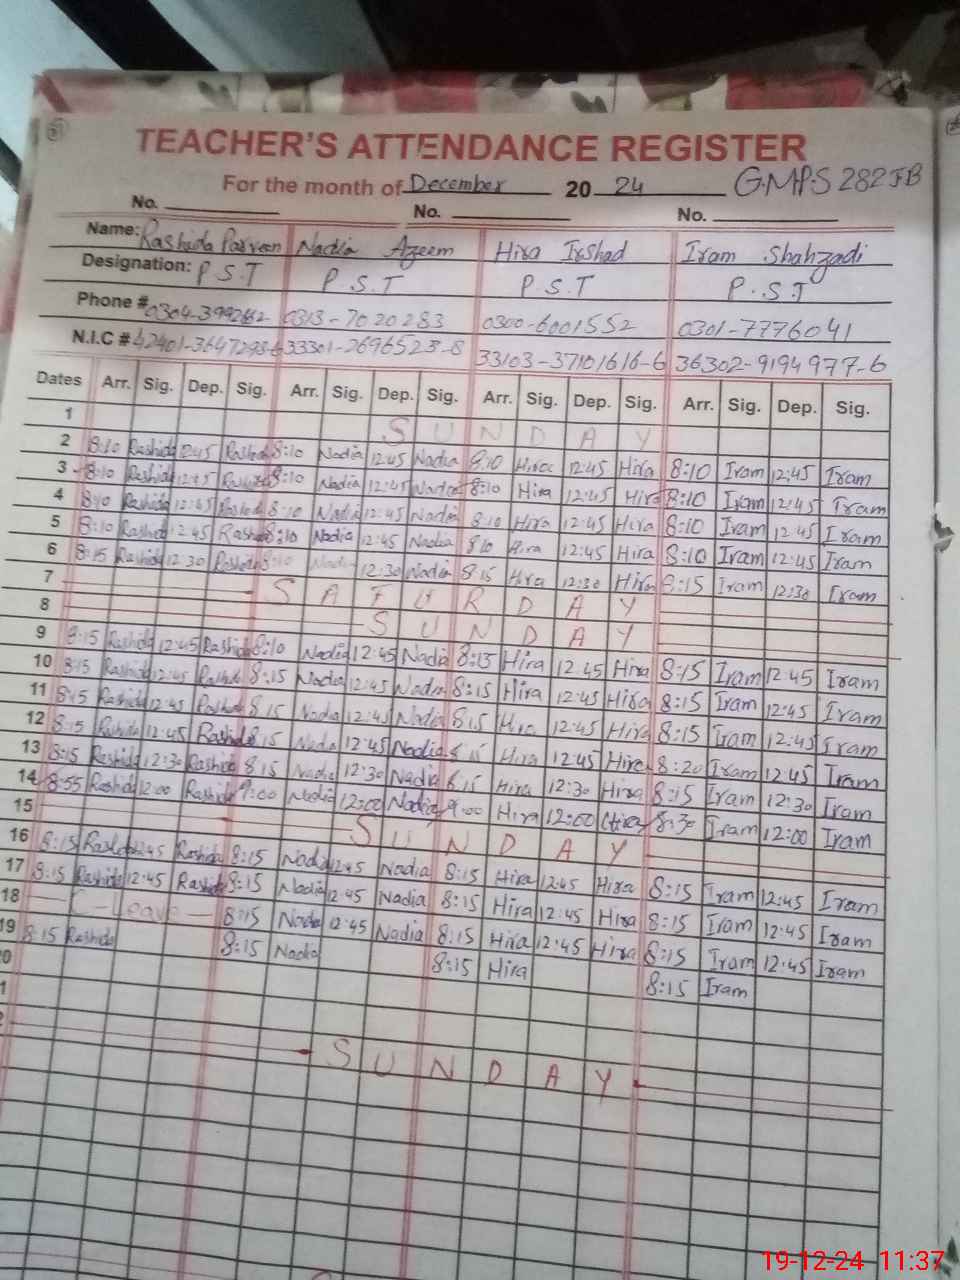 51
TEACHER'S ATTENDANCE REGISTER
For the month of December 20 24 G.M.P.S 282 JB
No. No. No.
Name: Rashida Parveen Nadia Azeem Hira Irshad Iram Shahzadi
Designation: P.S.T P.S.T P.S.T P.S.T
Phone # 0313-7020283 0300-6001552 0301-7776041
N.I.C # 33301-2696523-8 33103-37101616-6 36302-9194977-6
Dates Arr. Sig. Dep. Sig. Arr. Sig. Dep. Sig. Arr. Sig. Dep. Sig. Arr. Sig. Dep. Sig.
1 SUNDAY
2 8:10 Rashida 12:45 Rashida 8:10 Nadia 12:45 Nadia 8:10 Hira 12:45 Hira 8:10 Iram 12:45 Iram
3 8:10 Rashida 12:45 Rashida 8:10 Nadia 12:45 Nadia 8:10 Hira 12:45 Hira 8:10 Iram 12:45 Iram
4 8:10 Rashida 12:45 Rashida 8:10 Nadia 12:45 Nadia 8:10 Hira 12:45 Hira 8:10 Iram 12:45 Iram
5 8:10 Rashida 12:45 Rashida 8:10 Nadia 12:45 Nadia 8:10 Hira 12:45 Hira 8:10 Iram 12:45 Iram
6 8:15 Rashida 12:30 Rashida 8:10 Nadia 12:30 Nadia 8:15 Hira 12:30 Hira 8:15 Iram 12:30 Iram
7 SATURDAY
8 SUNDAY
9 8:15 Rashida 12:45 Rashida 8:10 Nadia 12:45 Nadia 8:15 Hira 12:45 Hira 8:15 Iram 12:45 Iram
10 8:15 Rashida 12:45 Rashida 8:15 Nadia 12:45 Nadia 8:15 Hira 12:45 Hira 8:15 Iram 12:45 Iram
11 8:15 Rashida 12:45 Rashida 8:15 Nadia 12:45 Nadia 8:15 Hira 12:45 Hira 8:15 Iram 12:45 Iram
12 8:15 Rashida 12:45 Rashida 8:15 Nadia 12:45 Nadia 8:15 Hira 12:45 Hira 8:20 Iram 12:45 Iram
13 8:15 Rashida 12:30 Rashida 8:15 Nadia 12:30 Nadia 8:15 Hira 12:30 Hira 8:15 Iram 12:30 Iram
14 8:55 Rashida 12:00 Rashida 9:00 Nadia 12:00 Nadia 9:00 Hira 12:00 Hira 8:30 Iram 12:00 Iram
15 SUNDAY
16 8:15 Rashida 12:45 Rashida 8:15 Nadia 12:45 Nadia 8:15 Hira 12:45 Hira 8:15 Iram 12:45 Iram
17 8:15 Rashida 12:45 Rashida 8:15 Nadia 12:45 Nadia 8:15 Hira 12:45 Hira 8:15 Iram 12:45 Iram
18 C-Leave 8:15 Nadia 12:45 Nadia 8:15 Hira 12:45 Hira 8:15 Iram 12:45 Iram
19 8:15 Rashida 8:15 Nadia 8:15 Hira 8:15 Iram
0
1
2 SUNDAY
19-12-24 11:37